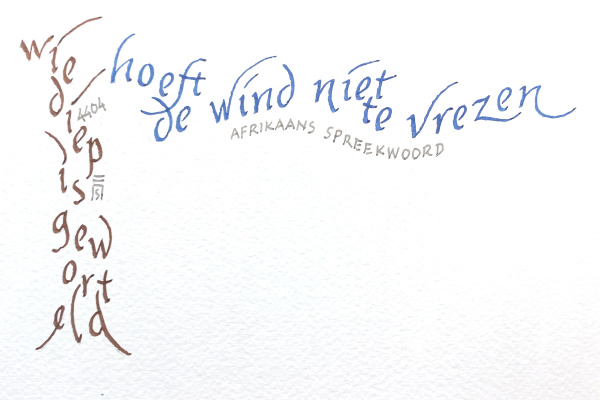 wie
diep
is
gew
ort
eld
hoeft de wind niet te vrezen
AFRIKAANS SPREEKWOORD
4404